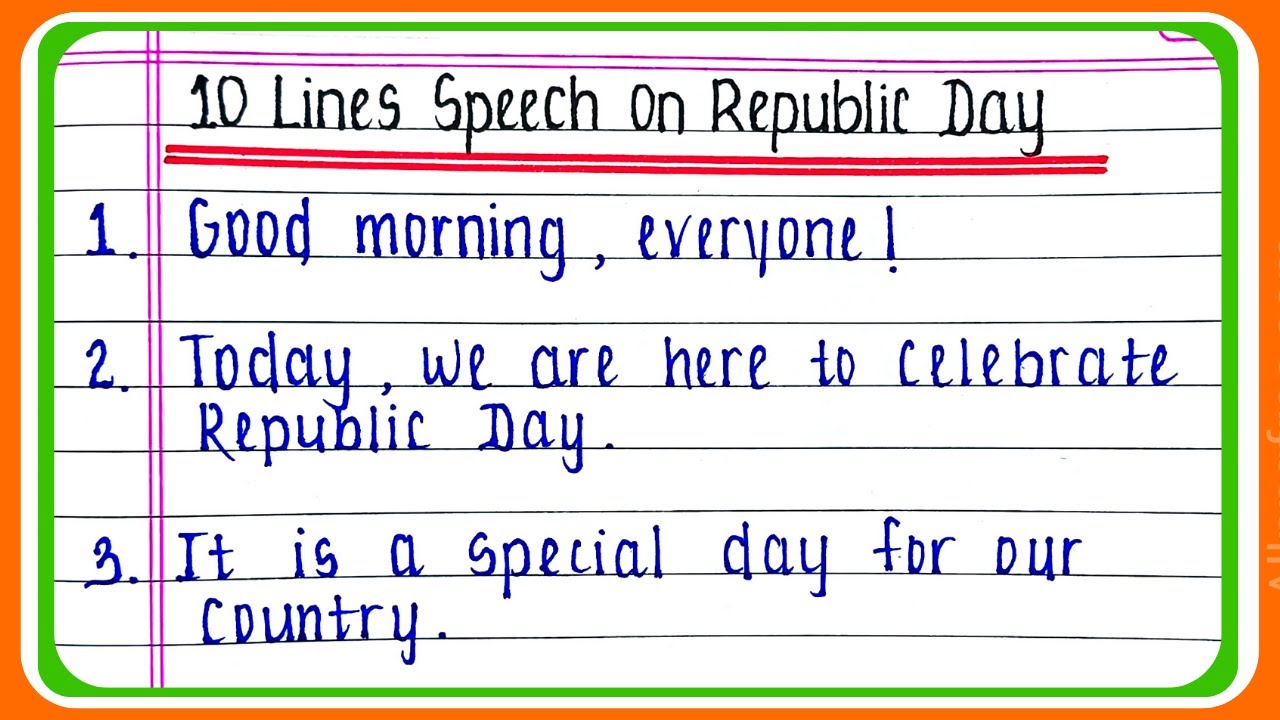 10 Lines Speech on Republic Day
1. Good morning, everyone!
2. Today, we are here to celebrate
Republic Day.
3. It is a special day for our
country.